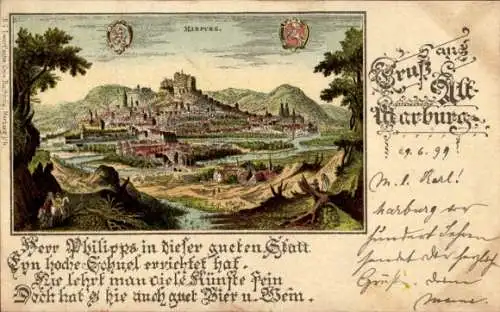 MARPURG.
Gruß aus
Alt-
Marburg.
29.6.99
M. l. Karl!
Marburg vor
hundert Jahren
sendet dir herzlich
Grüße dein
Herr Philipps in dieser gueten Statt
Eyn hoche Schuel errichtet hat.
Hie lehrt man viele Künste fein
Doch hat's hie auch guet Bier u. Wein.